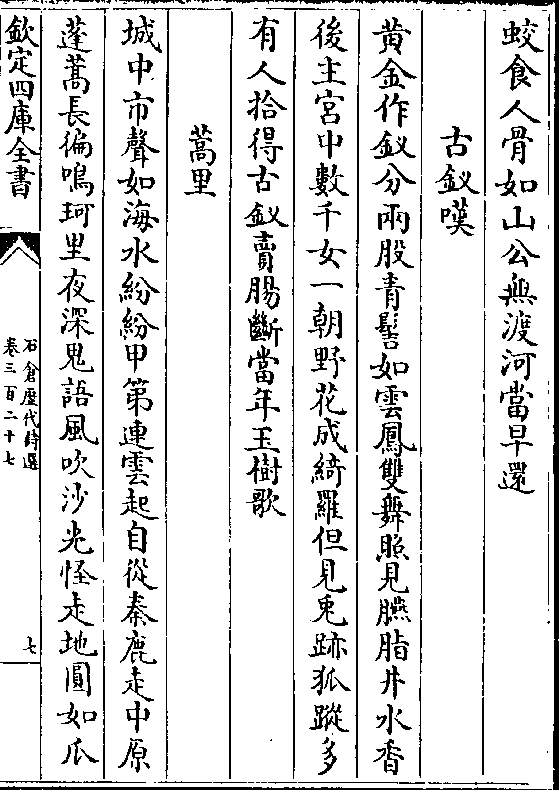 蛟食人骨如山公無渡河當早還
古釵嘆
黄金作釵分兩股青髻如雲鳳雙舞照見臙脂井水香
後主宮中數千女一朝野花成綺羅但見兎跡狐蹤多
有人拾得古釵賣腸斷當年玉樹歌
蒿里
城中市聲如海水紛紛甲第連雲起自從秦鹿走中原
蓬蒿長徧鳴珂里夜深鬼語風吹沙光怪走地圓如瓜
欽定四庫全書
石倉歷代詩選
卷三百二十七
七